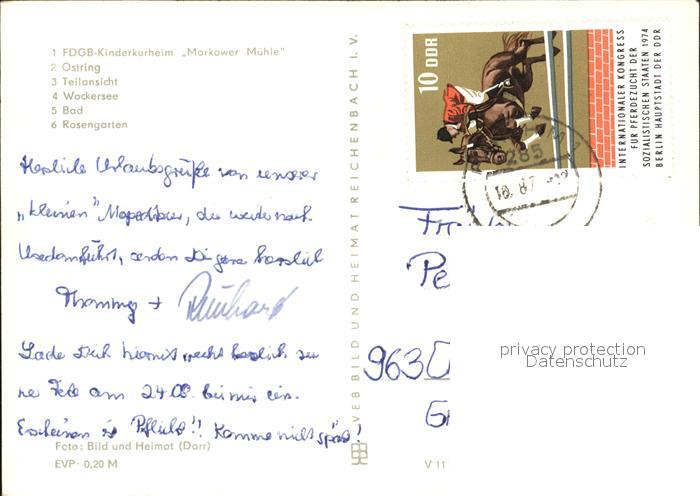 1 FDGB-Kinderkurheim „Markower Mühle"
2 Ostring
3 Teilansicht
4 Wockersee
5 Bad
6 Rosengarten
Herzliche Urlaubsgrüße von unserer
„kleinen" Mopedtour, die weiter nach
Usedom führt, senden Dir ganz herzlich
Thommy + Reinhard
Lade Dich hiermit recht herzlich zu
ner Fete am 24.08. bei mir ein.
Erscheinen ist Pflicht!! Komme nicht spät!
Foto: Bild und Heimat (Darr)
EVP · 0,20 M
VEB BILD UND HEIMAT REICHENBACH I. V.
V 11
10 DDR
INTERNATIONALER KONGRESS
FÜR PFERDEZUCHT DER
SOZIALISTISCHEN STAATEN 1974
BERLIN HAUPTSTADT DER DDR
285
Pe
9630
privacy protection
Datenschutz